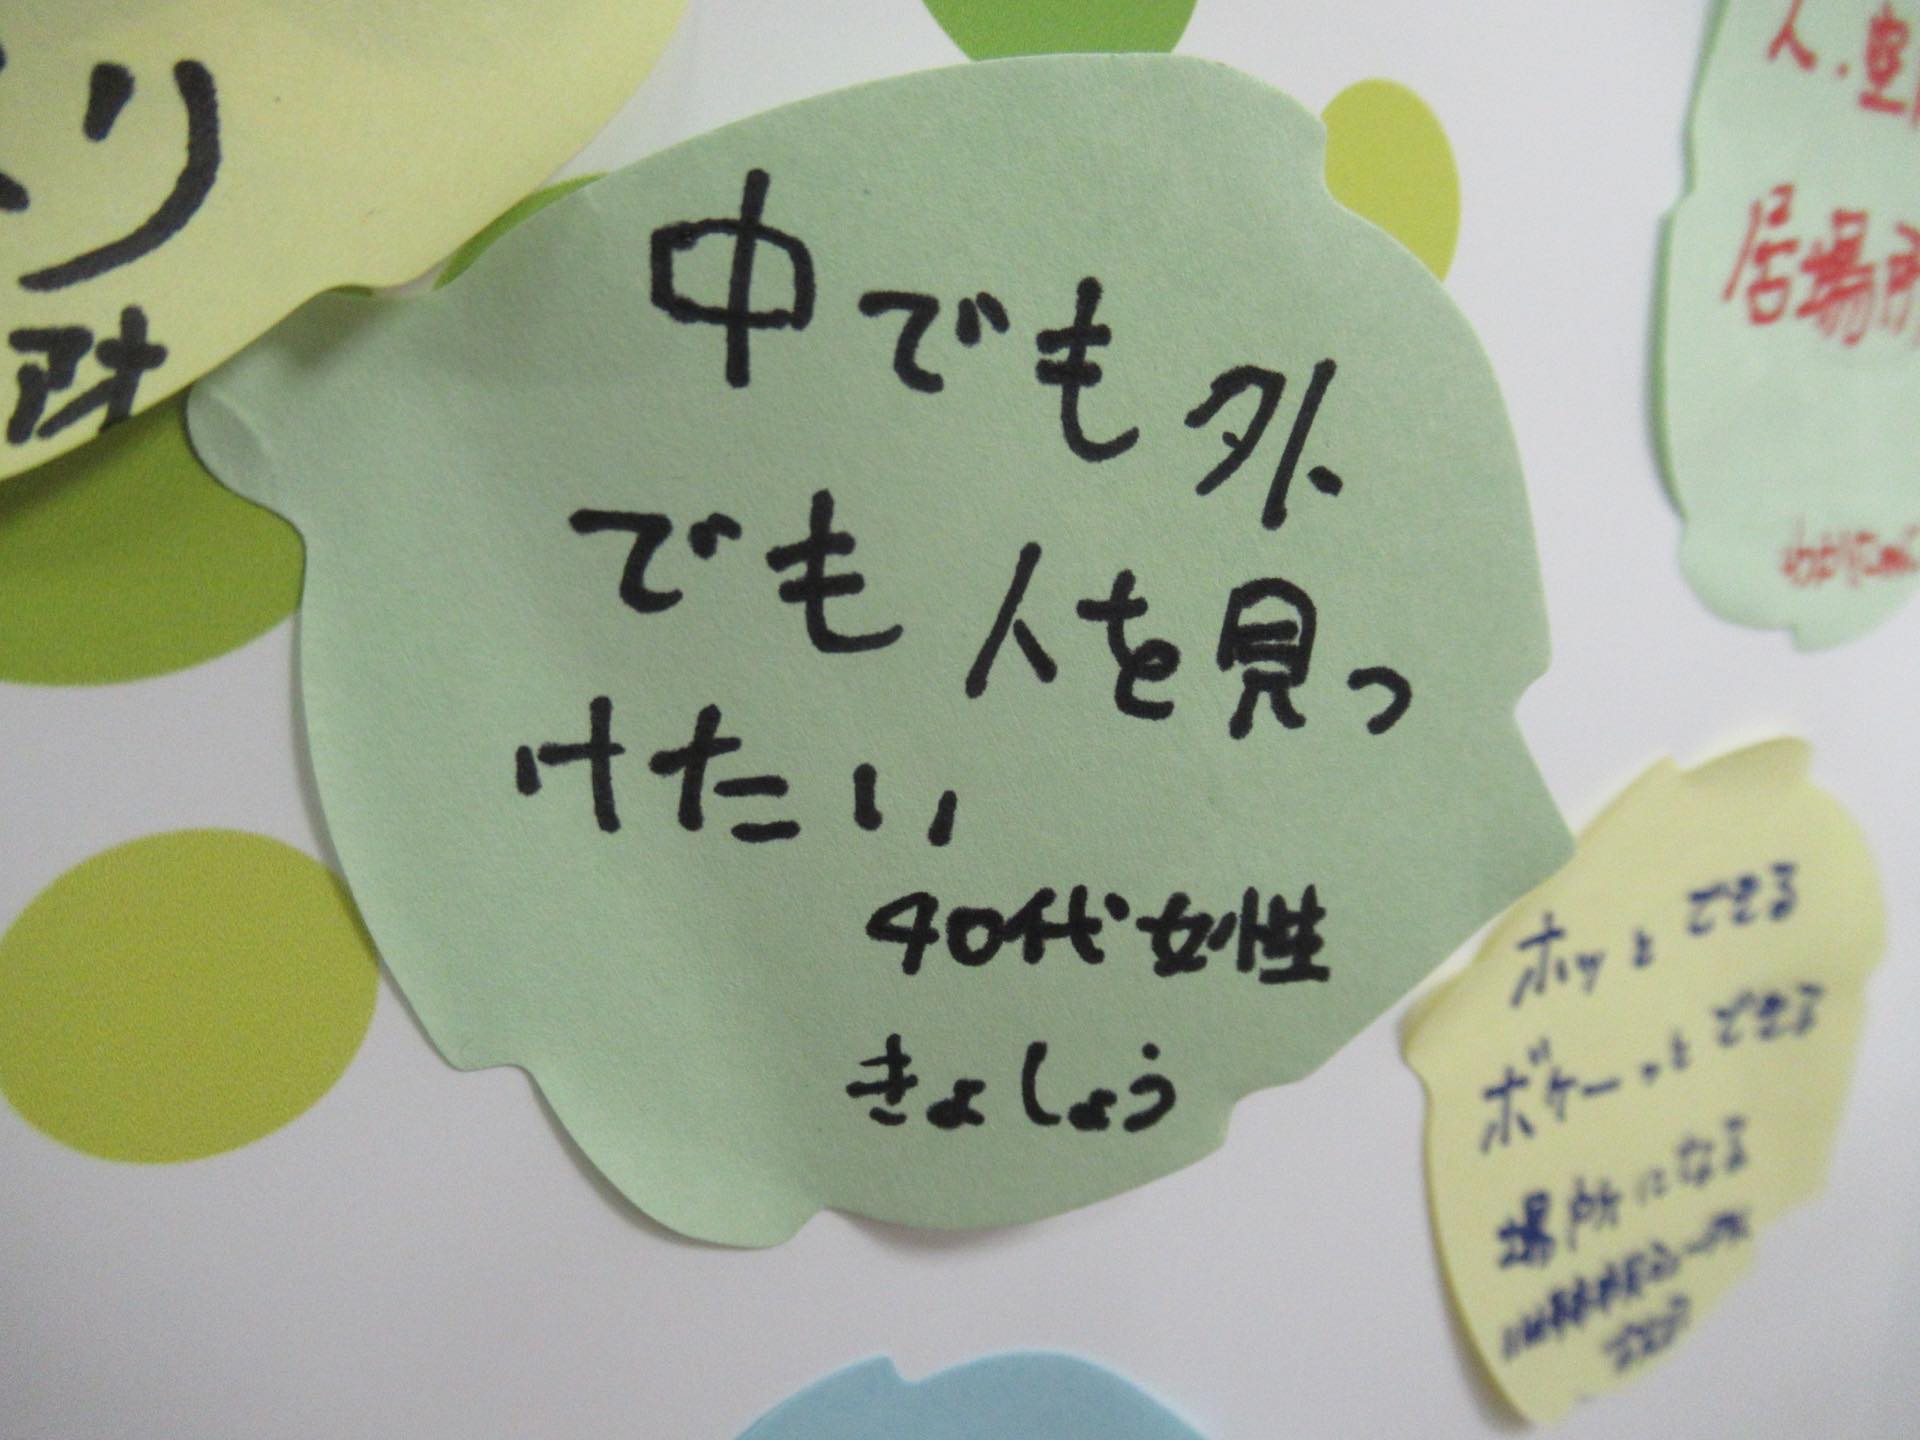 り
財
中でも外
でも人を見つ
けたい
40代女性
きょしょう
人、
居場所
ホッとできる
ボケーっとできる
場所になる